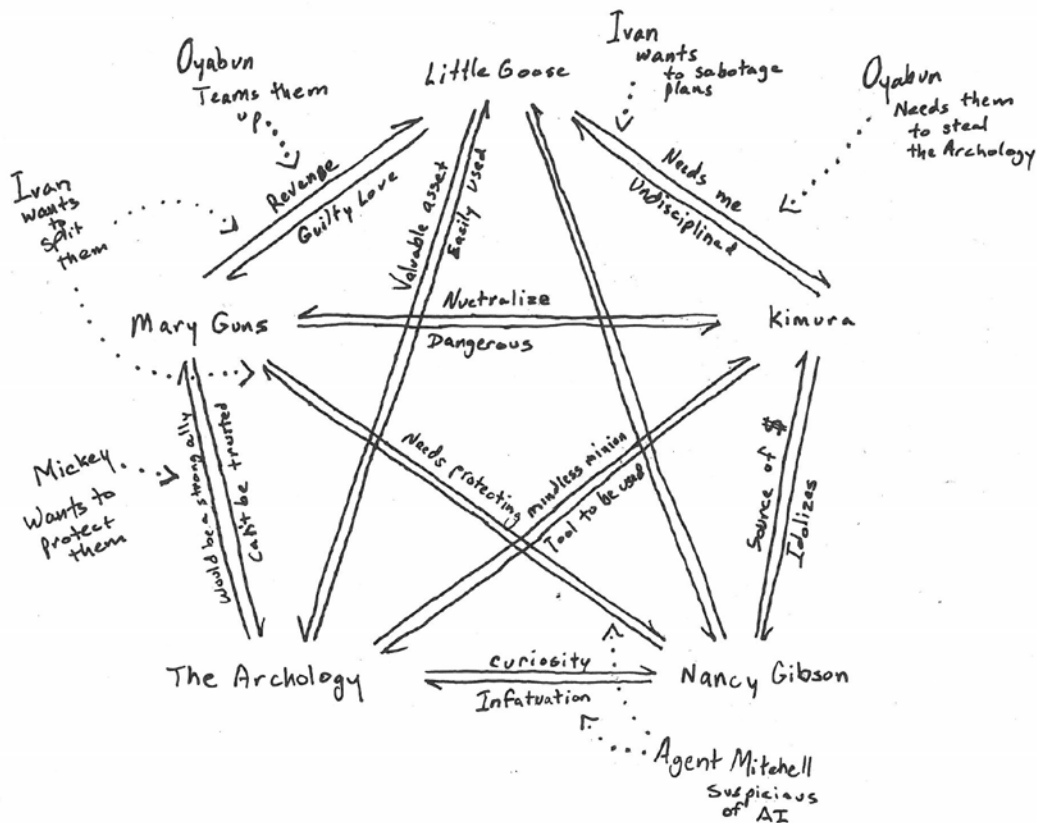 Oyabun
Teams them
up
Little Goose
Ivan
wants
to sabotage
plans
Oyabun
Needs them
to steal
the Archology
Ivan
wants
to
split
them
Revenge
Guilty Love
Valuable asset
Easily used
Needs me
Undisciplined
Mary Guns
Nuetralize
Dangerous
Kimura
Mickey
Wants to
protect
them
Would be a strong ally
Can't be trusted
Needs protecting
mindless minion
Tool to be used
Source of $
Idolizes
The Archology
Curiosity
Infatuation
Nancy Gibson
Agent Mitchell
Suspicious
of AI